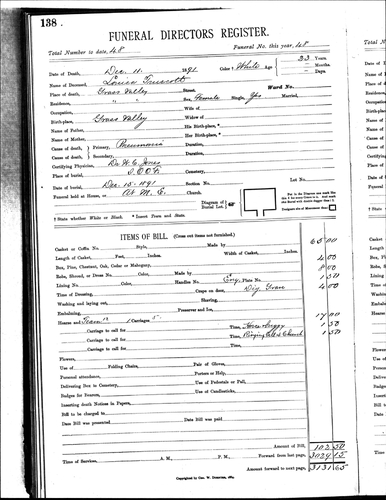 138.
FUNERAL DIRECTORS REGISTER.
Total Number to date, 48 Funeral No. this year, 48
Date of Death, Dec. 11 1891 Color † White Age 33 Years
Months
Days
Name of Deceased, Louisa
Place of death, Grass Valley Street, Ward No.
Residence, " " Sex, Female Single, Yes Married,
Occupation, Wife of
Birth-place, Grass Valley Widow of
Name of Father, His Birth-place, *
Name of Mother, Her Birth-place, *
Cause of death, Primary, Pneumonia Duration,
Cause of death, Secondary, Duration,
Certifying Physician, Dr. W. C. Jones
Place of burial, I.O.O.F. Cemetery,
Date of burial, Dec. 15 - 1891 Section No. Lot No.
Funeral held at House, or at M. E. Church. Diagram of Burial Lot.
† State whether White or Black. * Insert Town and State.
ITEMS OF BILL. (Cross out items not furnished.)
Casket or Coffin No. Style, Made by 65 00
Length of Casket, Feet, Inches. Width of Casket, Inches.
Box, Pine, Chestnut, Oak, Cedar or Mahogany, 4 00
Robe, Shroud, or Dress No. Color, Made by 8 00
Lining No. Color, Handles No. Eng. Plate No. 1 50
Time of Dressing, Crape on door, Dig. Grave 4 00
Washing and laying out, Shaving,
Embalming, Preserver and Ice,
Hearse and Carriages 5. 17 00
Carriage to call for Time, Horse & Buggy 1 50
Carriage to call for Time, Ringing bell at Church 1 50
Carriage to call for Time,
Flowers,
Use of Folding Chairs, Pair of Gloves,
Personal attendance, Porters or Help,
Delivering Box to Cemetery, Use of Pedestals or Pall,
Badges for Bearers, Use of Candlesticks,
Inserting death Notices in Papers,
Bill to be charged to
Date Bill was presented Date Bill was paid
Amount of Bill, 102 50
Time of Services, A. M., P. M., Forward from last page, 3029 15
Amount forward to next page, 3131 65